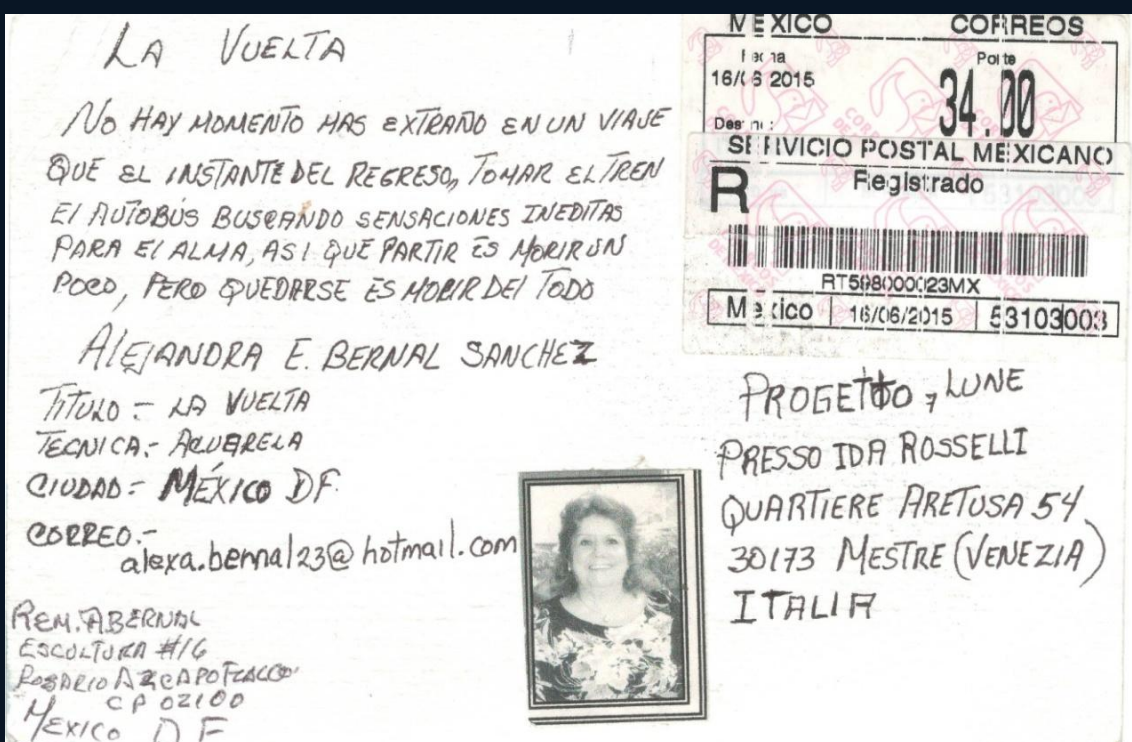 LA VUELTA
NO HAY MOMENTO MAS EXTRAÑO EN UN VIAJE
QUE EL INSTANTE DEL REGRESO, TOMAR EL TREN
El AUTOBÚS BUSCANDO SENSACIONES INEDITAS
PARA El ALMA, ASI QUE PARTIR ES MORIR UN
POCO, PERO QUEDARSE ES MORIR DEl TODO
AlEJANDRA E. BERNAL SANCHEZ
TITULO - LA VUELTA
TECNICA.- ACUARELA
CIUDAD - MÉXICO DF.
CORREO.-
alexa.bernal23@hotmail.com
REM. A BERNAL
ESCULTURA #16
ROSARIO AZCAPOTZALCO
CP 02100
MEXICO D F
MEXICO CORREOS
Fecha Porte
16/06/2015 34.00
Destino:
SERVICIO POSTAL MEXICANO
R Registrado
RT598000023MX
Mexico 16/06/2015 53103003
PROGETTO, LUNE
PRESSO IDA ROSSELLI
QUARTIERE ARETUSA 54
30173 MESTRE (VENEZIA)
ITALIA